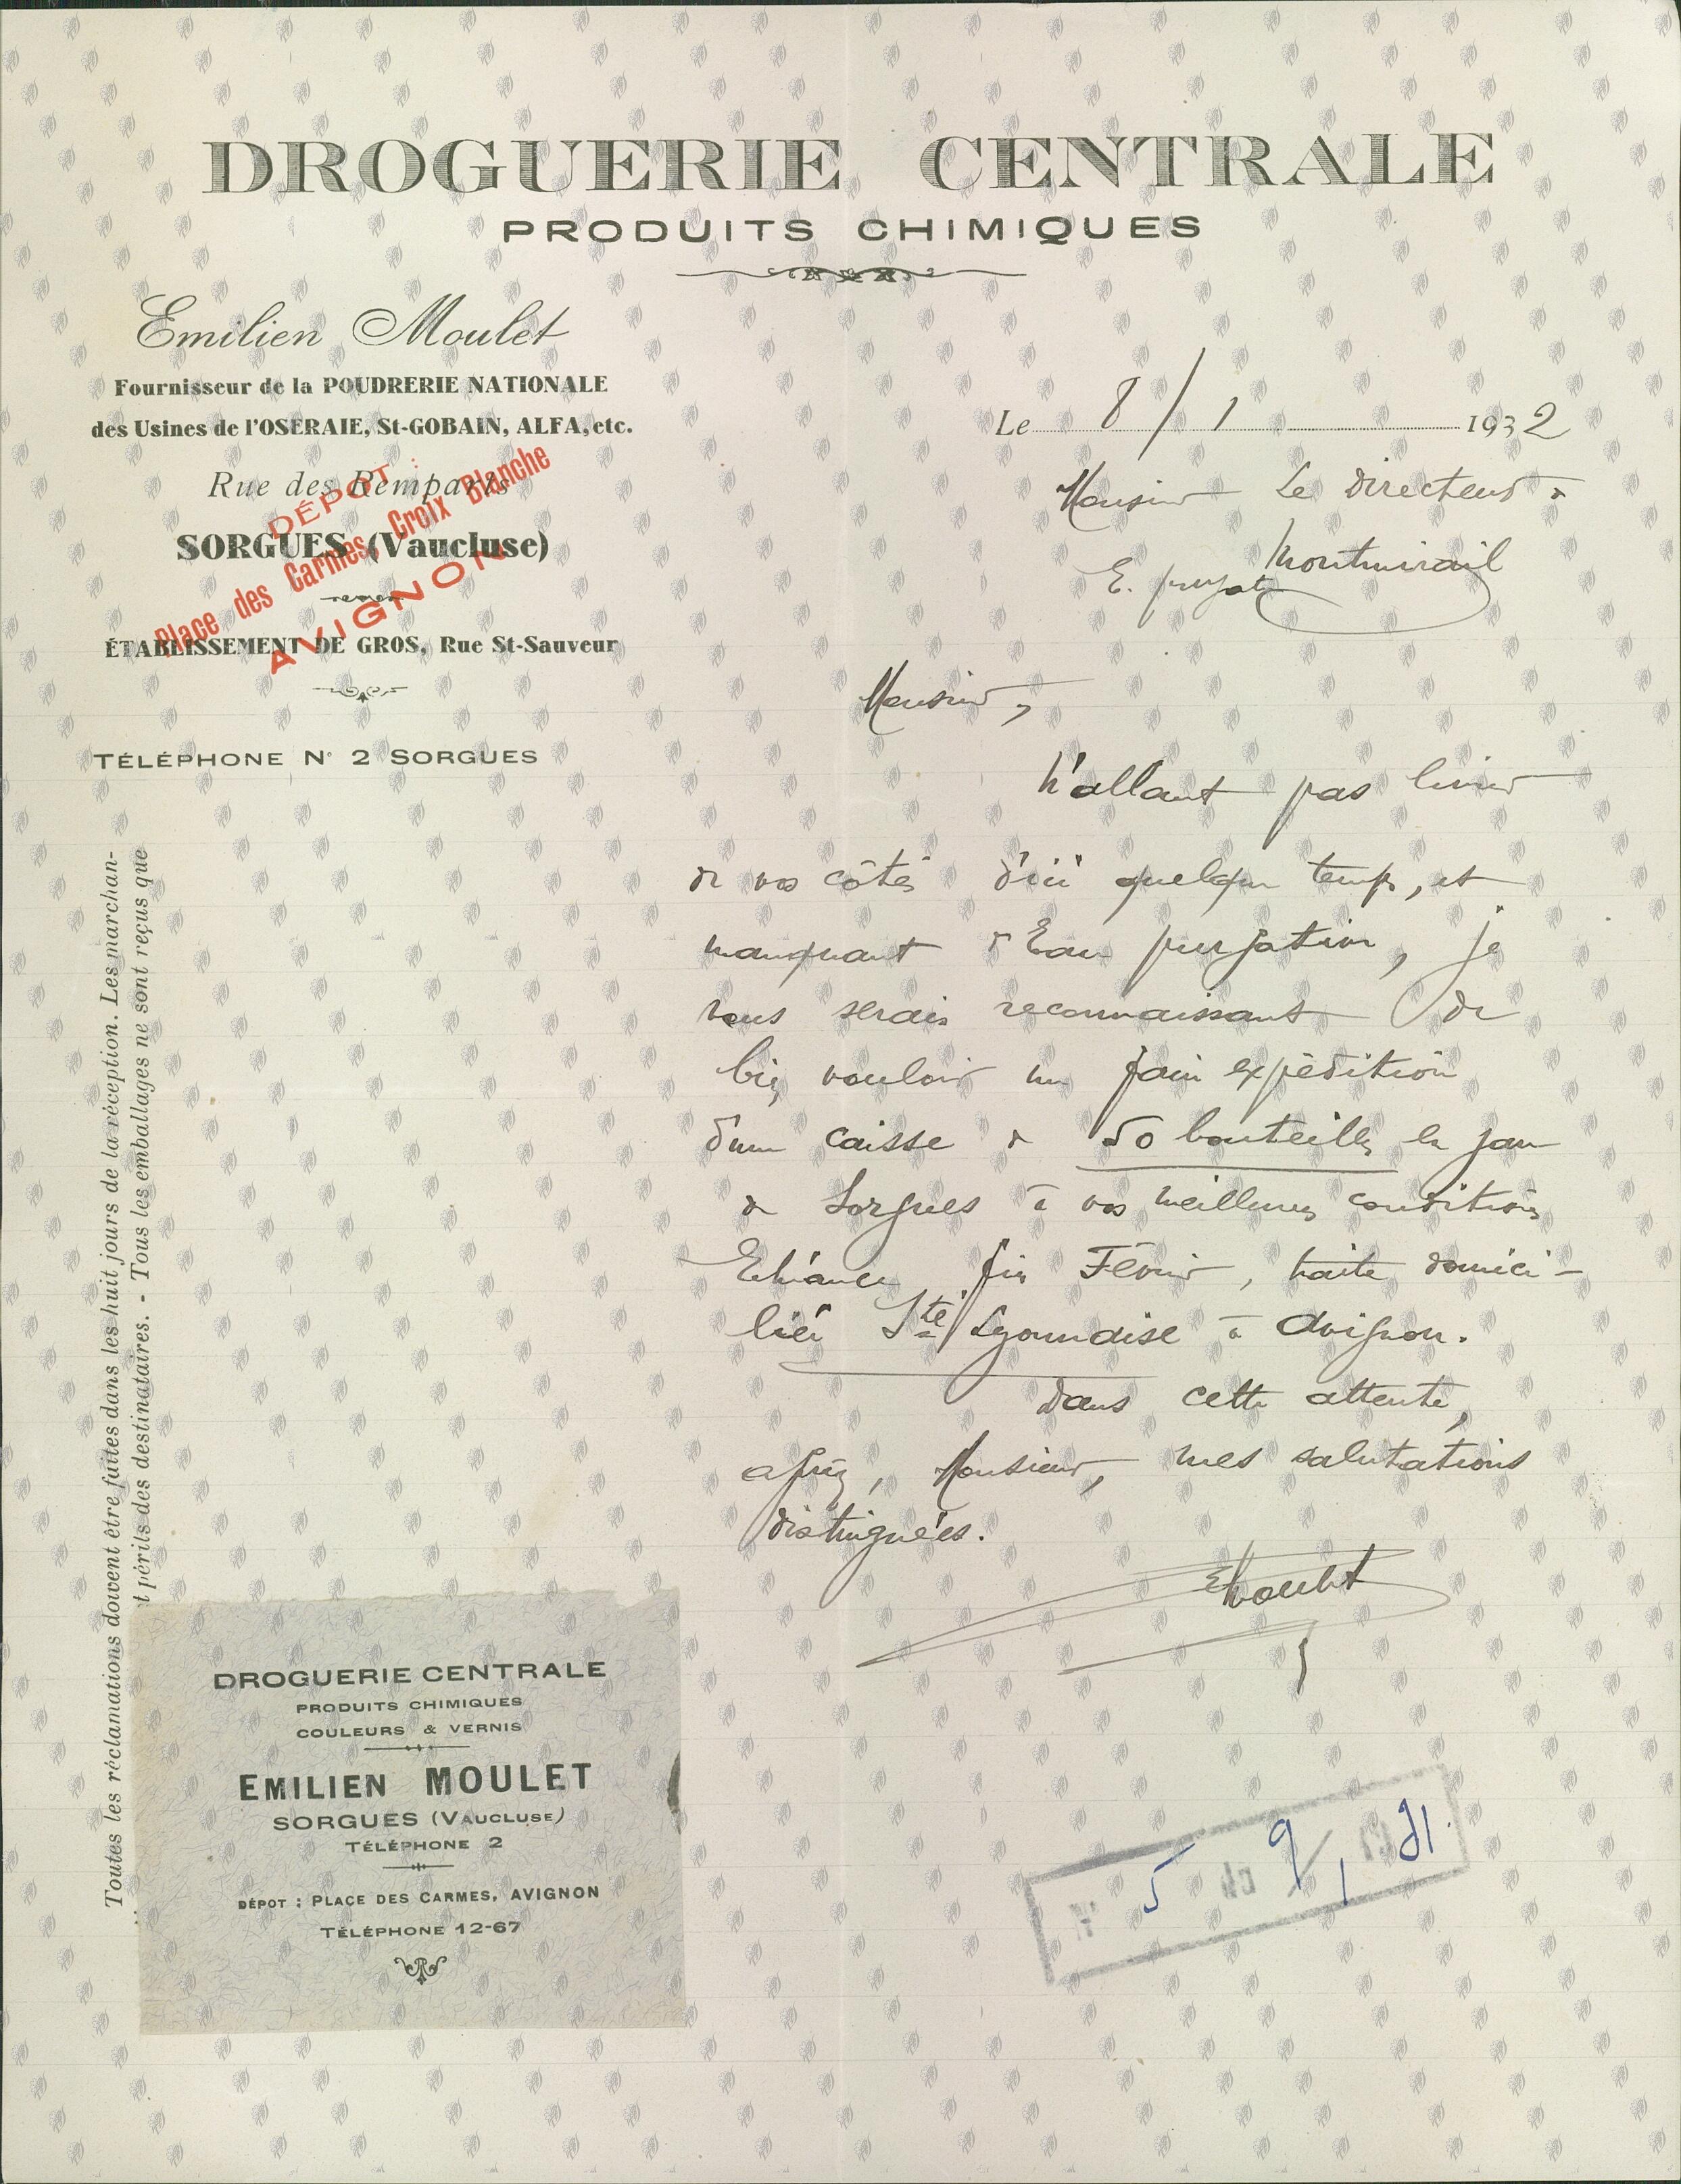 DROGUERIE CENTRALE
PRODUITS CHIMIQUES
Emilien Moulet
Fournisseur de la POUDRERIE NATIONALE
des Usines de l'OSERAIE, St-GOBAIN, ALFA, etc.
Rue des Remparts
SORGUES (Vaucluse)
ÉTABLISSEMENT DE GROS, Rue St-Sauveur
DÉPOT :
Place des Carmes, Croix Blanche
AVIGNON
TÉLÉPHONE N° 2 SORGUES
Le 8/1 1932
Monsieur Le directeur de
Montmirail
Monsieur,
N'allant pas livrer
de vos côtés d'ici quelque temps, et
manquant d'Eau purgative, je
vous serais reconnaissant de
bien vouloir me faire expédition
d'une caisse de 50 bouteilles en gare
de Sorgues à vos meilleures conditions
Echéance fin Février, traite domici-
liée Sté Lyonnaise à Avignon.
Dans cette attente,
agréez, Monsieur, mes salutations
distinguées.
EMoulet
Toutes les réclamations doivent être faites dans les huit jours de la réception. Les marchan-
t périls des destinataires. - Tous les emballages ne sont reçus que
DROGUERIE CENTRALE
PRODUITS CHIMIQUES
COULEURS & VERNIS
EMILIEN MOULET
SORGUES (VAUCLUSE)
TÉLÉPHONE 2
DÉPOT : PLACE DES CARMES, AVIGNON
TÉLÉPHONE 12-67
N° 5 du 9/1